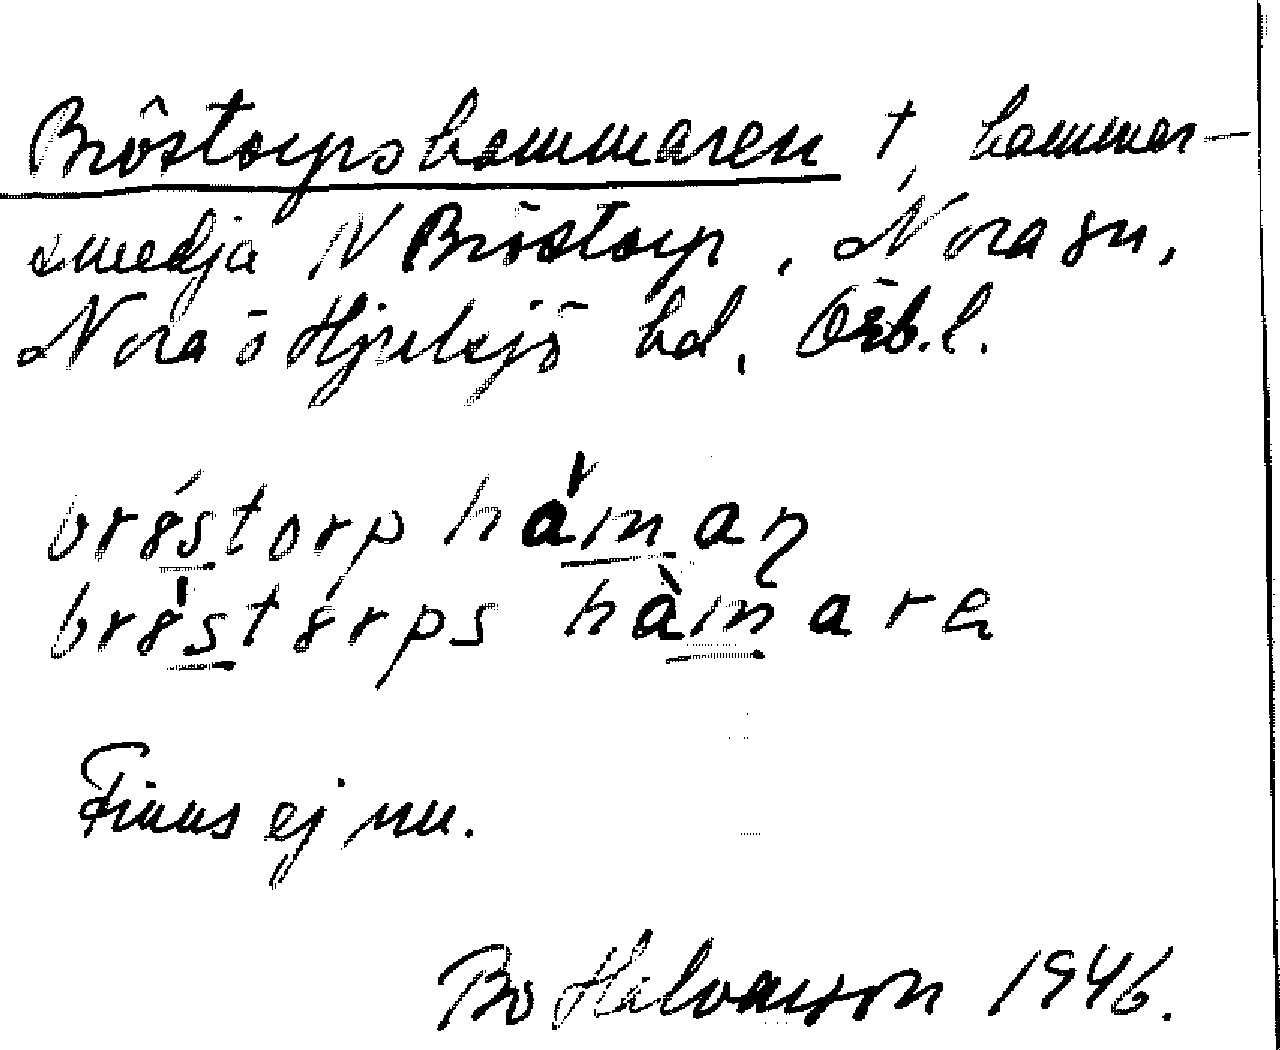 Bröstorpshammaren †, hammar-
smedja N Bröstorp, Nora sn,
Nora o Hjulsjö hd, Örb. l.
brɞ́storp hámaɳ
brɞ́stɞrps hàmara
Finns ej nu.
Bo Halvarson 1946.